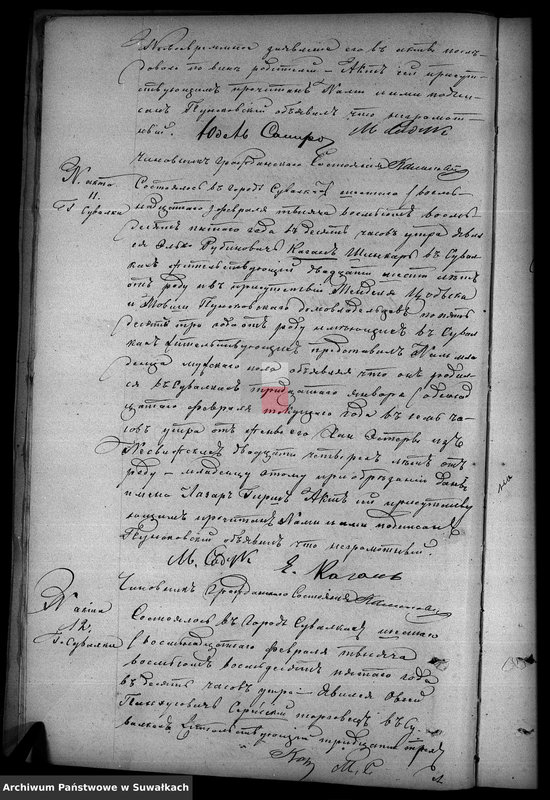 своевременное заявление его въ актъ после-
довало по вине родителя. Актъ сей присут-
ствующимъ прочитанъ Нами и ими подпи-
санъ Пуньковскій объявилъ что неграмот-
ный.
Чиновникъ Гражданскаго Состоянія
N. акта
11.
Г. Сувалки
Состоялось въ Городѣ Сувалкахъ шестаго (восем-
надцатаго) февраля тысяча восемьсотъ восемь-
десятъ пятаго года въ десять часовъ утра явил-
ся Элько Рубиновичъ Каганъ въ Сувал-
кахъ жительствующій двадцати шести лѣтъ
отъ роду и въ присутствіи Мейделя
и Мовши Пуньковскаго домовладельцевъ по пять-
десятъ три года отъ роду имеющихъ въ Сувал-
кахъ жительствующихъ предъставилъ Намъ мла-
денца мужескаго пола объявляя что онъ родил-
ся въ Сувалкахъ тридцатаго января (одинад-
цатаго) февраля текущаго года въ семь ча-
совъ утра отъ жены его Хаи Эстеры изъ
двадцати четырехъ лѣтъ отъ
роду — младенцу этому при обрезаніи дано
имя Лазаръ Гиршъ Актъ сей присутству-
ющимъ прочитанъ Нами и ими подписанъ
Пуньковскій объявилъ что неграмотный.
Е. Каганъ
Чиновникъ Гражданскаго Состоянія
N акта
12.
Г. Сувалки
Состоялось въ Городѣ Сувалкахъ шестаго
(восемнадцатаго) февраля тысяча
восемьсотъ восемьдесятъ пятаго года
въ десять часовъ утра — Явился Овсей
торговецъ въ Су-
валкахъ жительствующій тридцати трехъ
Archiwum Państwowe w Suwałkach